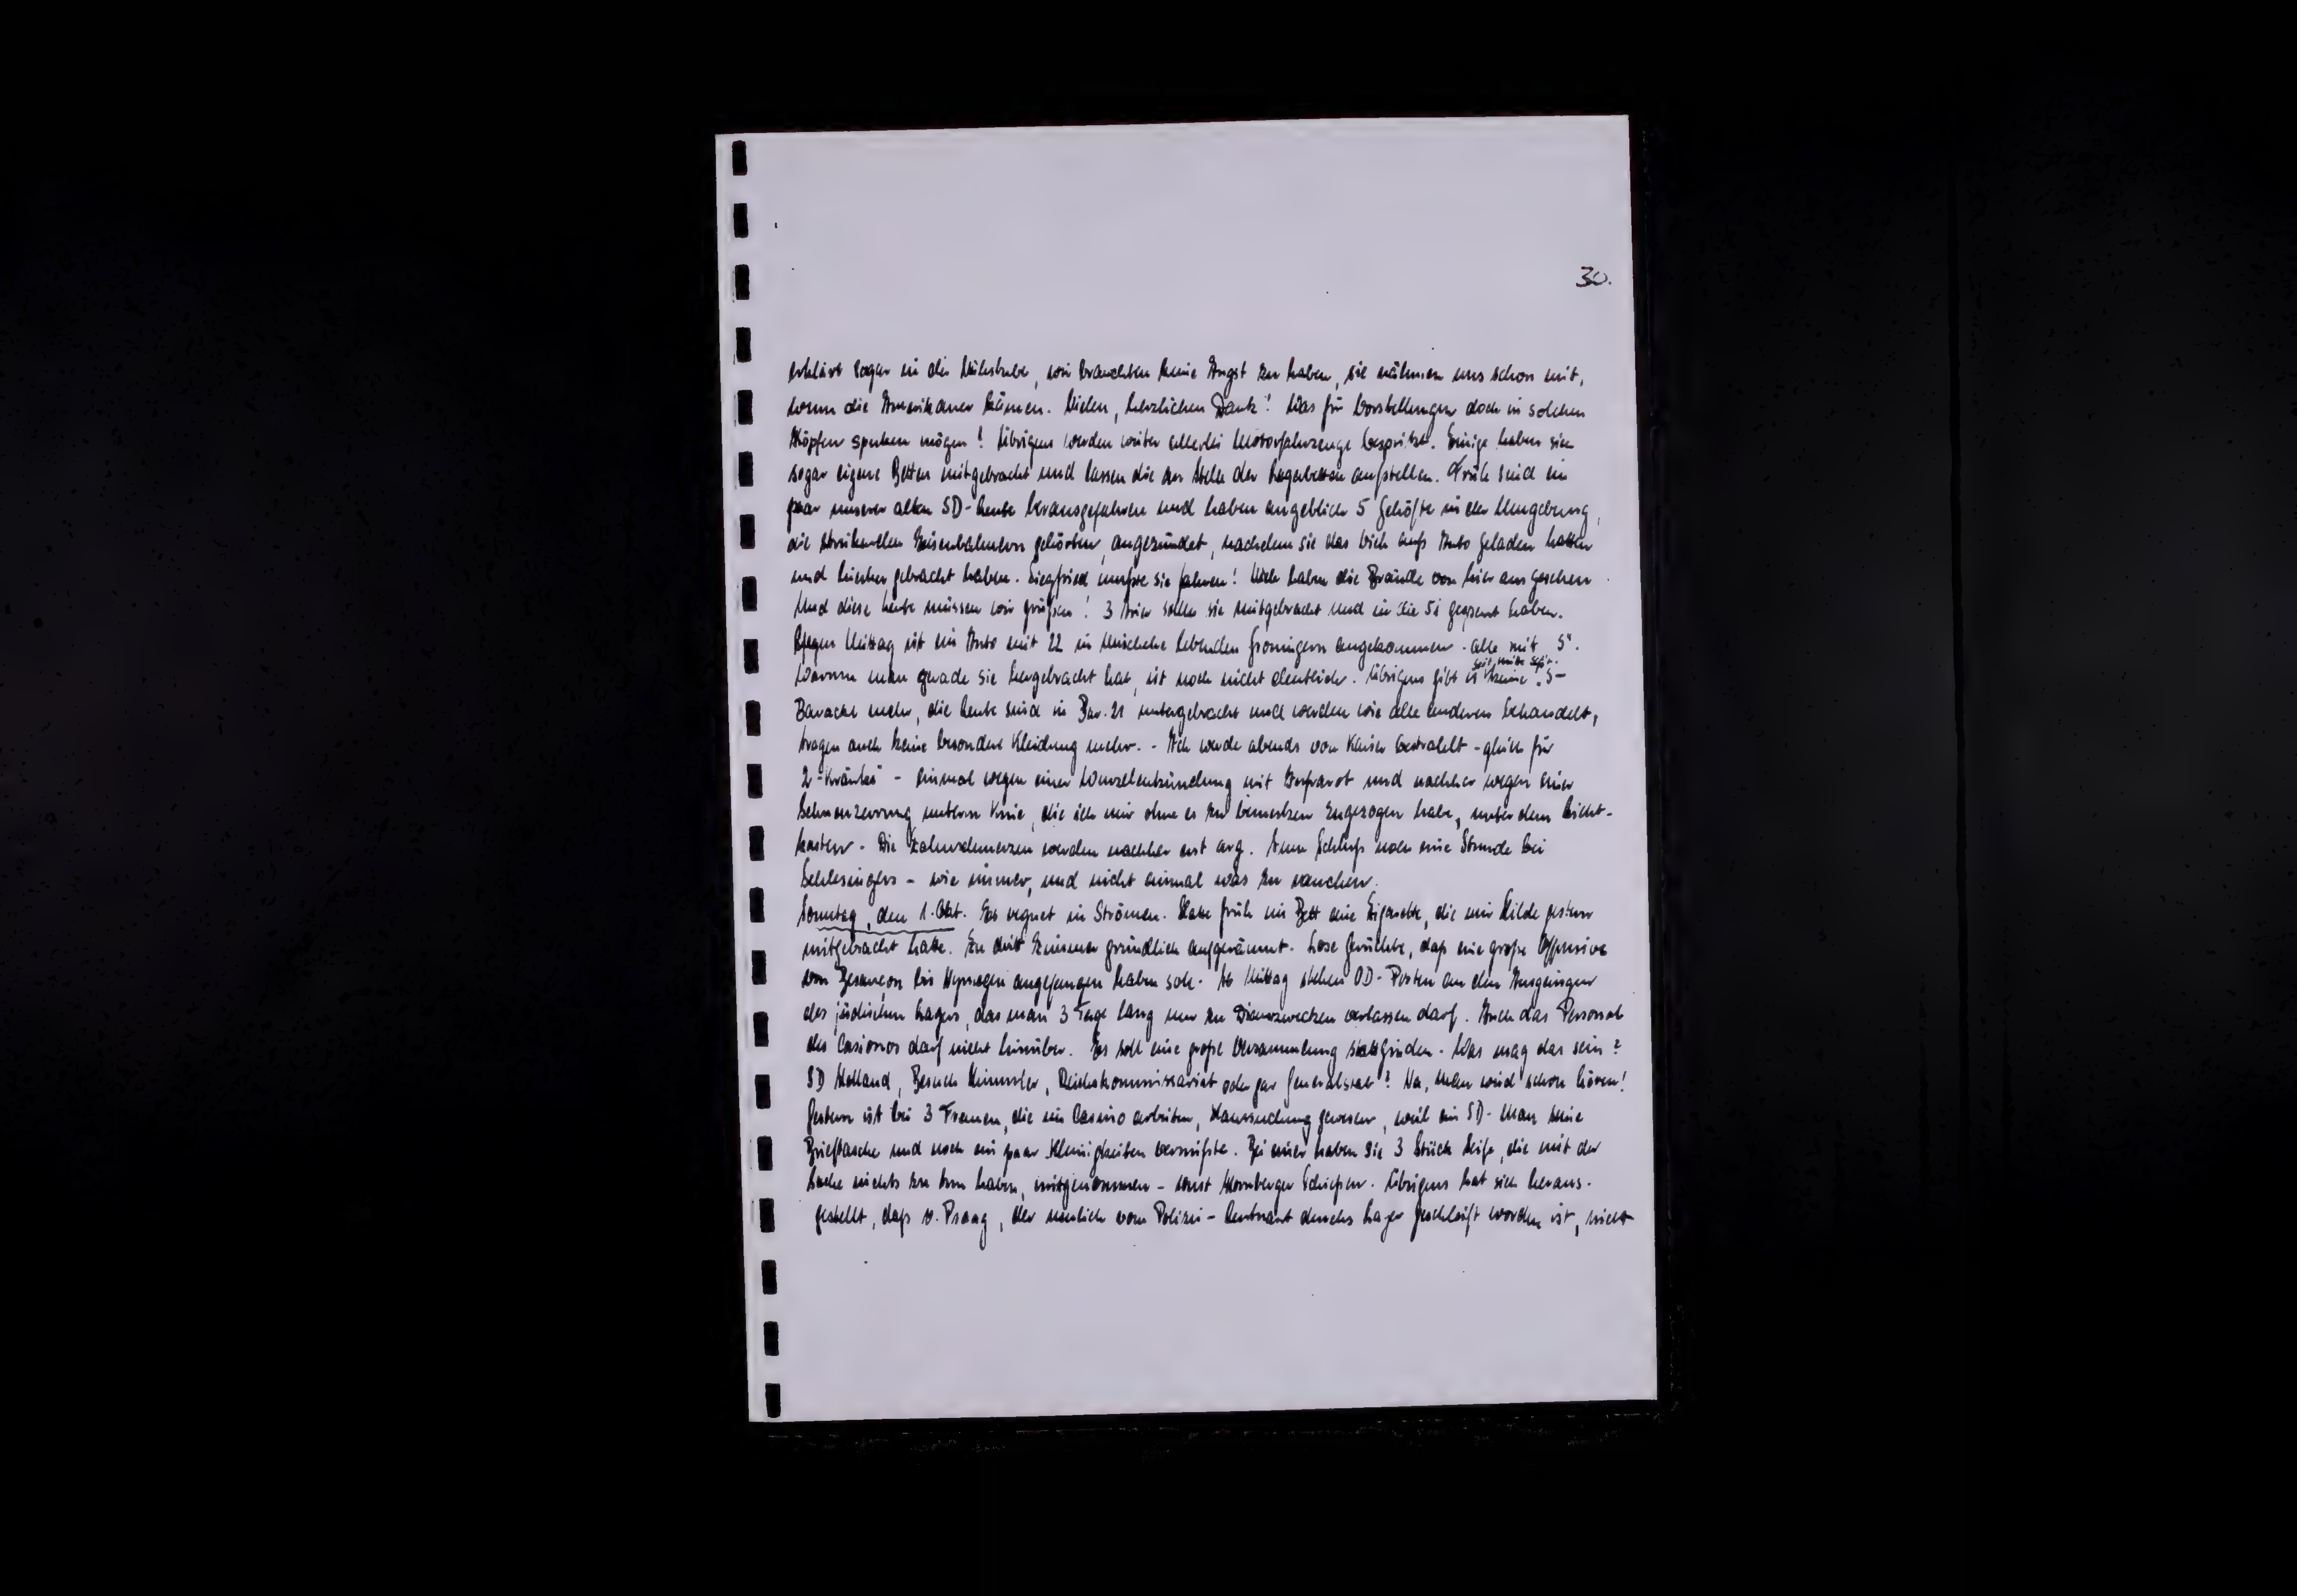 30.
erklärt sogar in der Nähstube, wir brauchten keine Angst zu haben, sie nähmen uns schon mit,
wenn die Amerikaner kämen. Vielen, herzlichen Dank! Was für Vorstellungen doch in solchen
Köpfen spuken mögen! Übrigens werden weiter allerlei Motorfahrzeuge gespritzt. Einige haben sich
sogar eigene Betten mitgebracht und lassen die an Stelle der Lagerbetten aufstellen. Früh sind ein
paar unserer alten SD-Leute herausgefahren und haben angeblich 5 Gehöfte in der Umgebung,
die streikenden Eisenbahnern gehörten, angezündet, nachdem sie das Vieh aufs Auto geladen hatten
und hierher gebracht haben. Siegfried mußte sie fahren! Viele haben die Brände von hier aus gesehen
Und diese Leute müssen wir grüßen! 3 Arier sollen sie mitgebracht und in die 51 gesperrt haben.
Gegen Mittag ist ein Auto mit 22 in Mischehe lebenden Groningern angekommen. Alle mit "S".
Warum man gerade sie hergebracht hat, ist noch nicht deutlich. Übrigens gibt es seit Mitte Sept. keine "S-
Baracke mehr, die Leute sind in Bar. 21 untergebracht und werden wie alle anderen behandelt,
tragen auch keine besondere Kleidung mehr. - Ich werde abends von Kaiser bestrahlt - gleich für
2 - einmal wegen einer Wurzelentzündung mit Infrarot und nachher wegen einer
Sehnenzerrung unterm Knie, die ich mir ohne es zu bemerken zugezogen habe, unter dem Licht-
kasten. Die Zahnschmerzen werden nachher erst arg. Zum Schluß noch eine Stunde bei
Schlesingers - wie immer, und nicht einmal was zu rauchen.
Sonntag, den 1. Okt. Es regnet in Strömen. Habe früh im Bett eine Zigarette, die mir Hilde gestern
mitgebracht hatte. Zu dritt Zimmer gründlich aufgeräumt. Lose Gerüchte, daß eine große Offensive
von Besançon bis Nymegen angefangen haben soll. Ab Mittag stehen OD-Posten an den Ausgängen
des jüdischen Lagers, das man 3 Tage lang nur zu Dienstzwecken verlassen darf. Auch das Personal
des Casinos darf nicht hinüber. Es soll eine große Versammlung stattfinden. Was mag das sein?
SD Holland, Besuch Himmler, Reichskommissariat oder gar Generalstab? Na, man wird schon hören!
Gestern ist bei 3 Frauen, die im Casino arbeiten, Haussuchung gewesen, weil ein SD-Mann seine
Brieftasche und noch ein paar Kleinigkeiten vermißte. Bei einer haben sie 3 Stück Seife, die mit der
Sache nichts zu tun haben, mitgenommen - sonst Hornberger Schießen. Übrigens hat sich heraus-
gestellt, daß v. Praag, der neulich vom Polizei-Leutnant durchs Lager geschleift worden ist, nicht